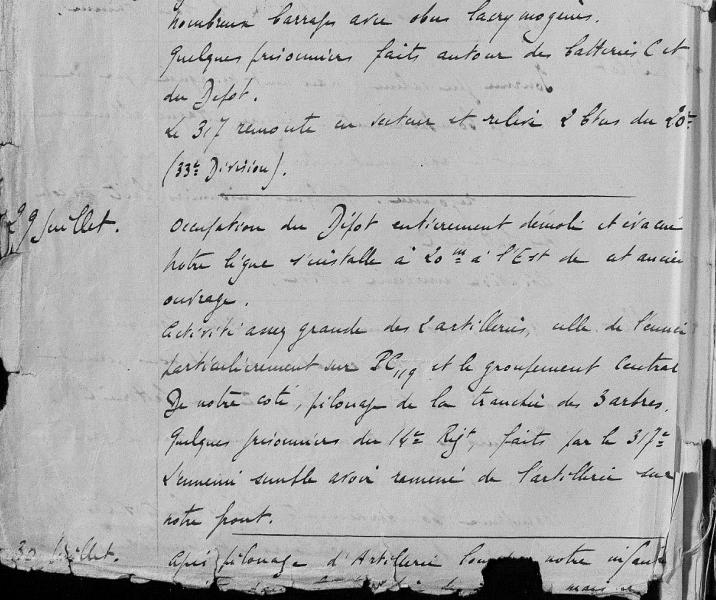 nombreux barrages avec obus lacrymogènes.
Quelques prisonniers faits autour des batteries C et
du Dépôt.
Le 317 remonte en secteur et relève 2 Btns du 20e
(33e Division).
29 Juillet. Occupation du Dépôt entièrement démoli et évacué
Notre ligne s'installe à 20m à l'Est de cet ancien
ouvrage.
Activité assez grande des 2 artilleries, celle de l'ennemi
particulièrement sur PC119 et le groupement Central
De notre coté, pilonage de la tranchée des 3 arbres.
Quelques prisonniers du Regt, faits par le 317e
L'ennemi semble avoir ramené de l'artillerie sur
notre front.
30 Juillet. Après pilonage d'Artillerie notre